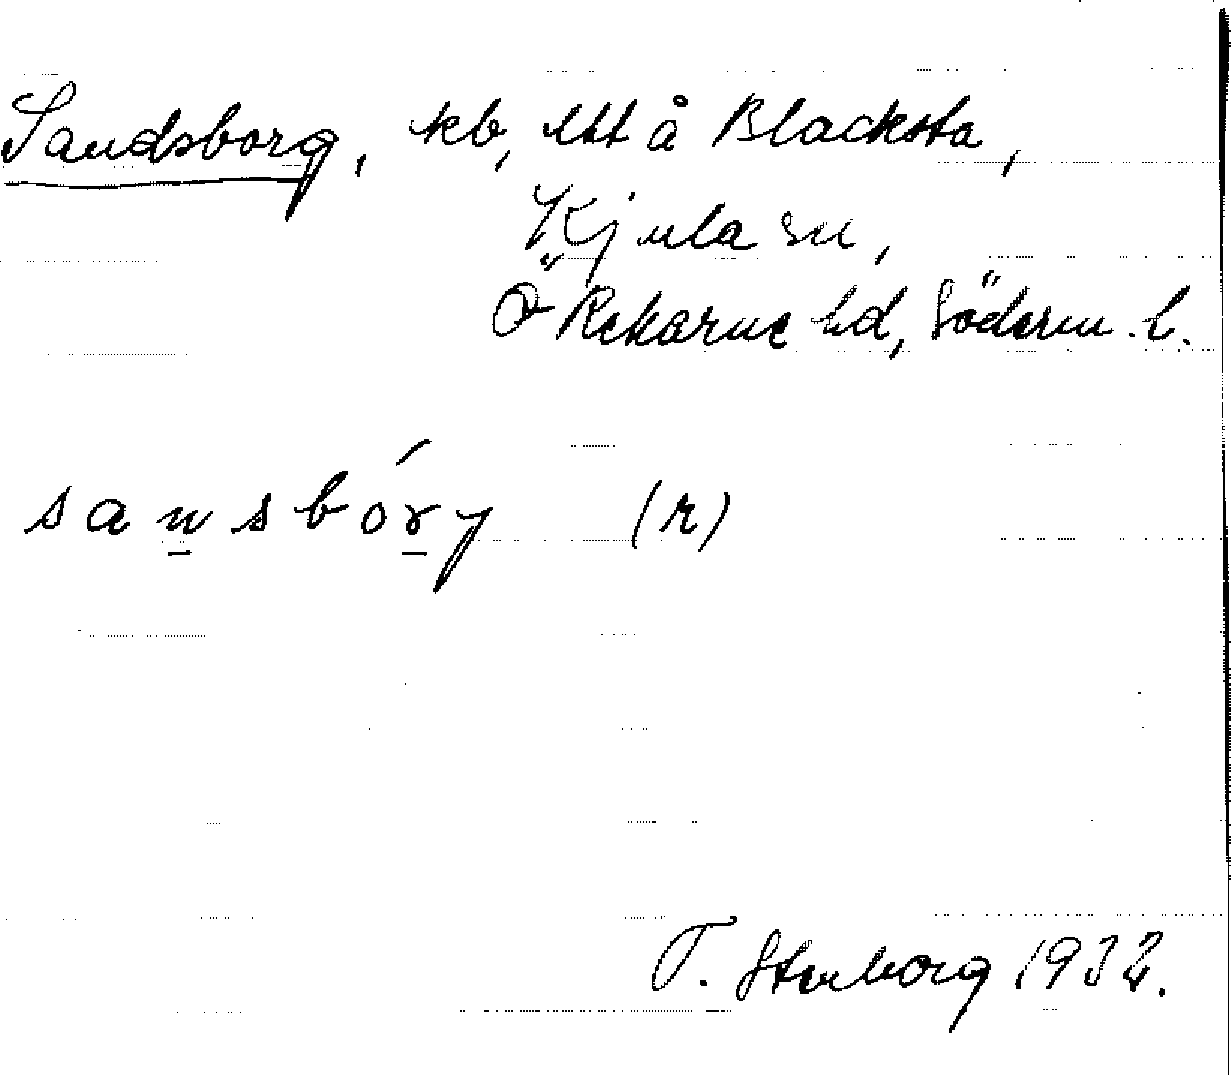 Sandsborg, kb, ltt å Blacksta,
Kjula sn,
Ö Rekarne hd, Söderm. l.
sansbóry (r)
T. Stenborg 1932.